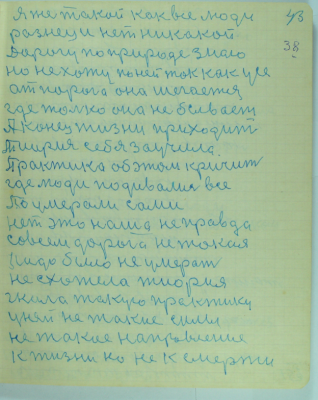 я же такой как все люди 43
разнеци нет никакой 38
Дарогу по природе знаю
но не хожу по ней так как усе
ат порога она мегается
где толко она не бывает
А конец жизни приходит
Тиория себя заучила.
Практика об этом кричит
где люди подивалис все
Поумерали сами
нет это наша не правда
совсем дорога не такая
Надо было не умерат
не схотела тиория
гнала такую практику
у ней не такие силы
не такое направление
к жизни но не к смерти